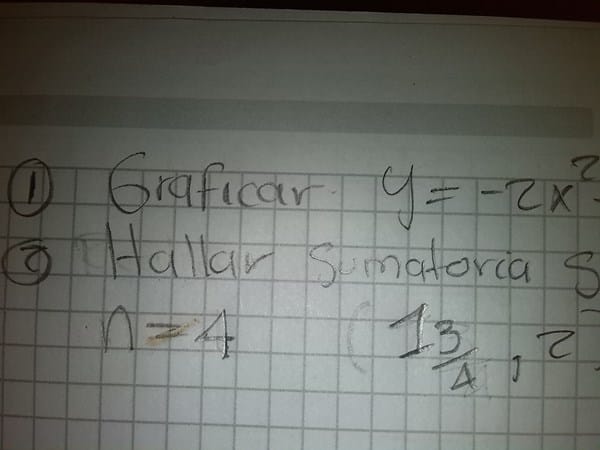 ① Graficar y = -2x²
② Hallar Sumatoria S
n = 4 ( 1 3/4 , 2